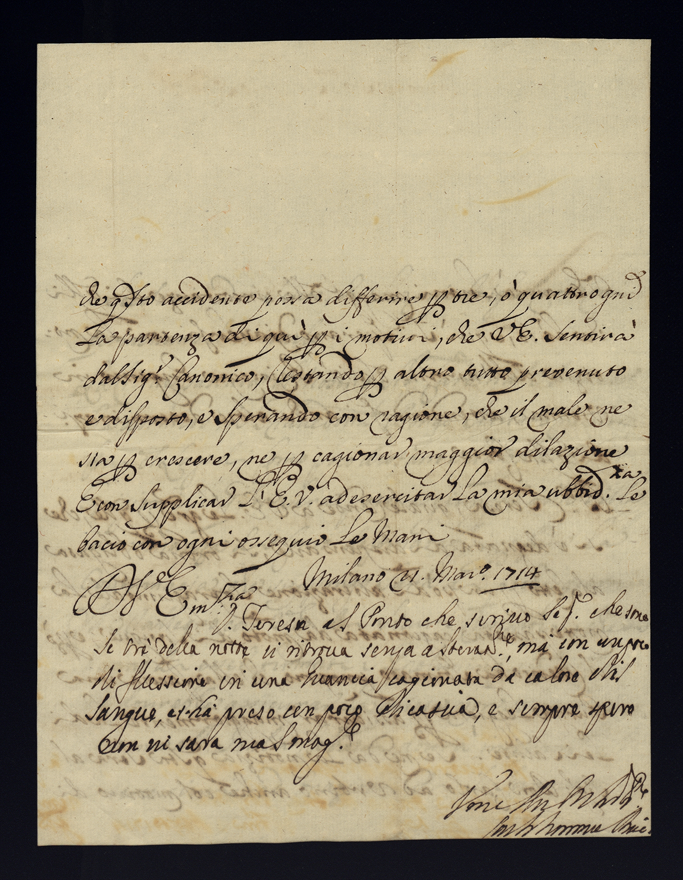 che q.sto accidente possa differire p tre, ò quattro gni
La partenza di quì p i motivi, che V.E. sentirà
dal Sig.r Canonico, restando p altro tutto prevenuto
e disposto, e sperando con ragione, che il male ne
sia p crescere, ne p cagionar maggior dilazione
E con supplicar L'E.V. ad esercitar La mia ubbid.za Le
bacio con ogni ossequio Le Mani
Milano 21. Mar.o 1714
D. Teresa al Ponto che scrivo che sono
le tre della notte si ritrova senza, ma con un poco
di flussione in una Guancia cagionata da calore del
Sangue, et hà preso un poco di Cassia, e sempre spero
non vi sarà mal mag.re